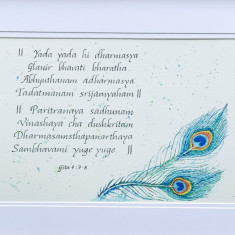 || Yada yada hi dharmasya
Glanir bhavati bharatha
Abhyuthanam adharmasya
Tadatmanam srijamyaham ||
|| Paritranaya sadhunam
Vinashaya cha dushkritam
Dharmasamsthapanarthaya
Sambhavami yuge yuge ||
Gita 4:7-8